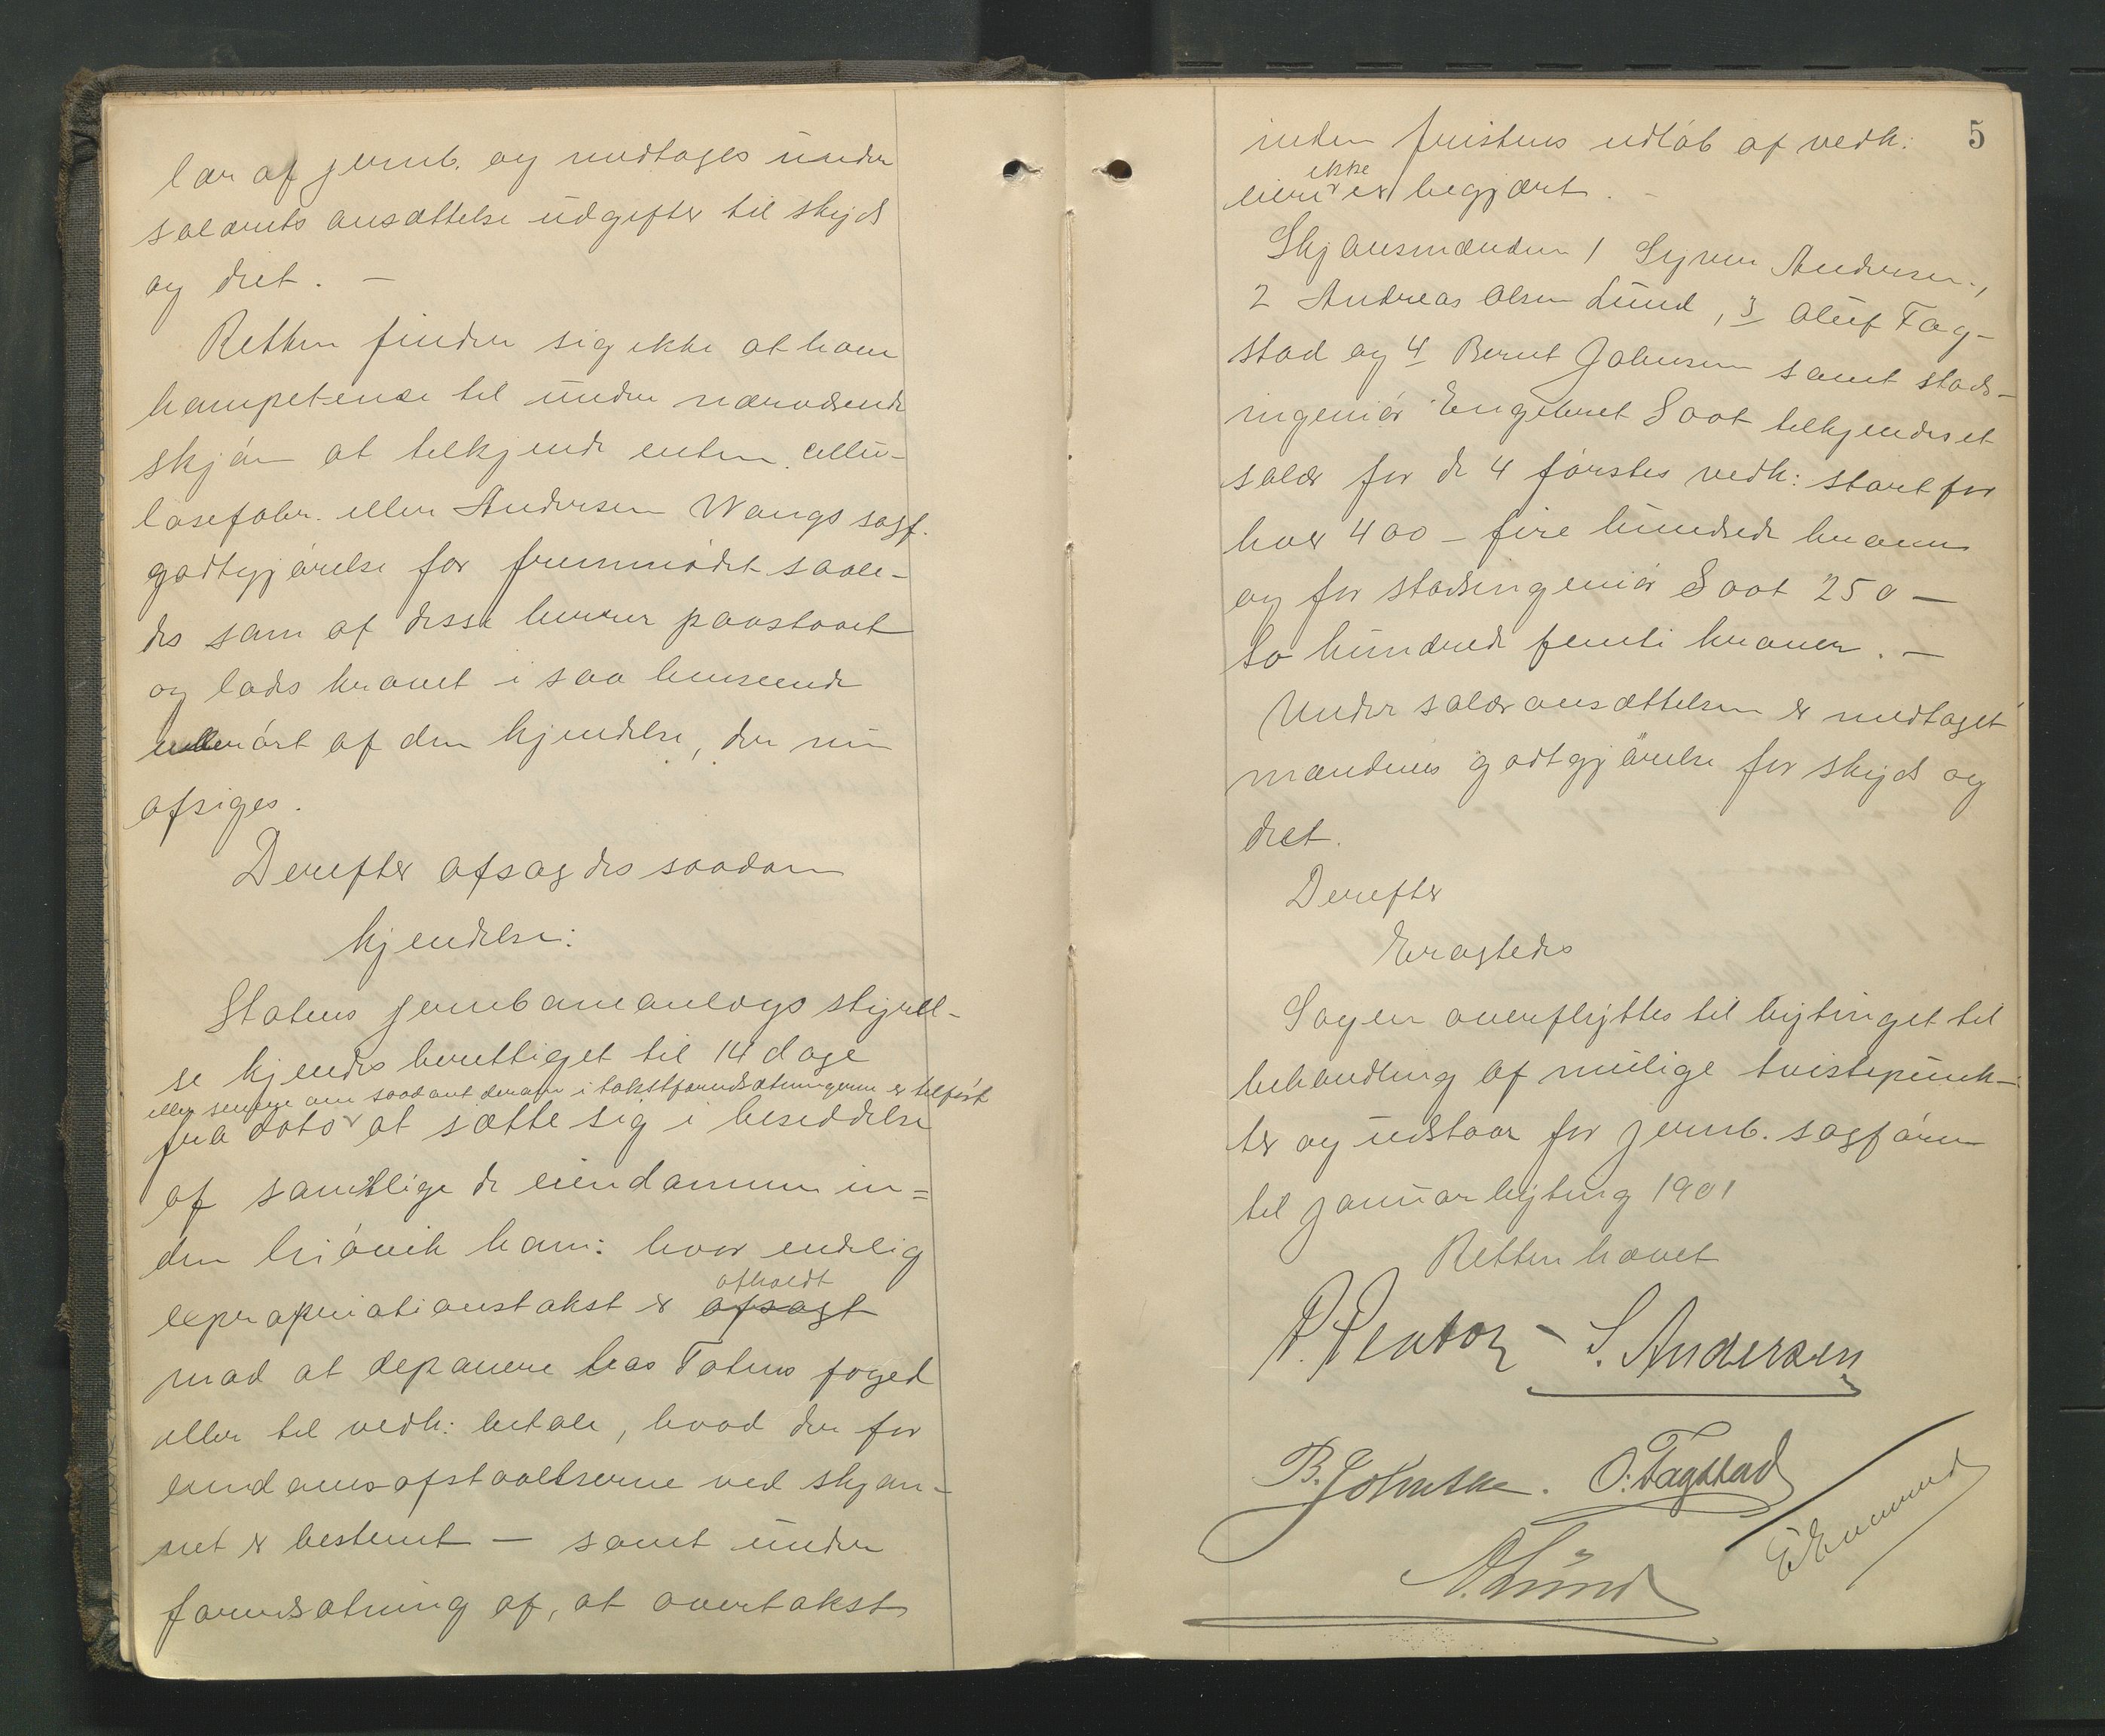 lær af jernb. og medtages under
salærets ansættelse udgifter til skyds
og diet. –
Retten finder sig ikke at have
kompetence til under nærværende
skjøn at tilkjende enten cellu-
losefabr. eller Andersen Wangs sagf.
godtgjørelse for fremmødet saale-
des som af disse herrer paastaaet
og lades kravet i saa henseende
uberørt af den kjendelse, der nu
afsiges.
Derefter afsagdes saadan
kjendelse:
Statens jernbaneanlægs styrel-
se kjendes berettiget til 14 dage
eller senere om saadant derom i takstforudsætningerne er tilført
fra dato at sætte sig i besiddelse
af samtlige de eiendomme in-
den Gjøvik kom: hvor endelig
afholdt
expropriationstakst er afsagt
mod at deponere hos Totens foged
eller til vedk: betale, hvad der for
eiendomsafstaaelserne ved skjøn-
net er bestemt – samt under
forudsætning af, at overtakst
5
inden fristens udløb af vedk:
ikke
eiere er begjært. –
Skjønsmændene 1 Syver Andersen,
2 Andreas Olsen Lund, 3 Oluf Fag-
stad og 4 Bernt Johnsen samt stads-
ingeniør Engebret Soot tilkjendes et
salær for de 4 førstes vedk: stort for
hver 400 – fire hundrede kroner
og for stadsingeniør Soot 250 –
to hundrede femti kroner. –
Under salæransættelsen er medtaget
mændenes godtgjørelse for skyds og
diet.
Derefter
Eragtedes
Sagen overflyttes til bytinget til
behandling af mulige tvistepunk-
ter og udstaar for jernb. sagfører
til januar byting 1901
Retten hævet
S. Andersen
B. Johnsen. O. Fagstad
A. Lund